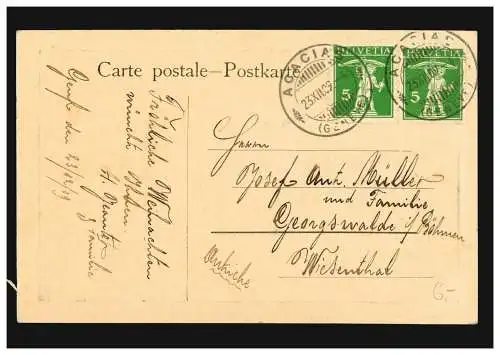 Carte postale—Postkarte
HELVETIA
5
5
ACACIAS
23.XII.09
(GENÈVE)
ACACIAS
(GENÈVE)
Genf den 23/12/09
Fröhliche Weihnachten
wünscht Ihnen
& Familie
Herrn
Josef Ant. Müller
und Familie
Georgswalde i/Böhmen
Wiesenthal
6,-